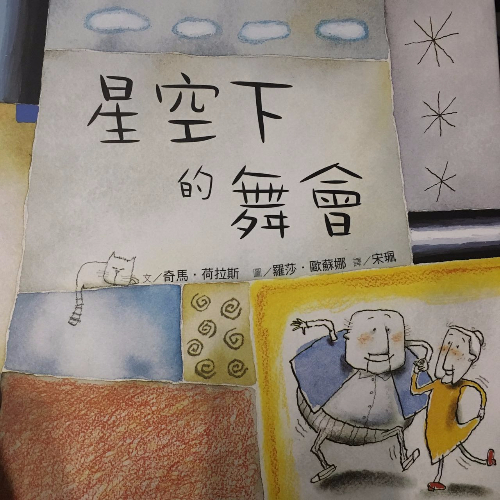 星空下
的舞會
文／奇馬·荷拉斯 圖／羅莎·歐蘇娜 譯／宋珮